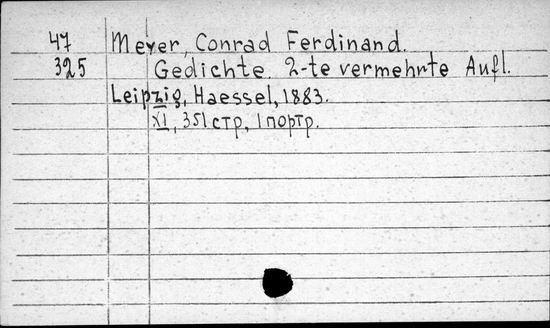 47 Meyer, Conrad Ferdinand.
325 Gedichte. 2-te vermehrte Aufl.
Leipzig, Haessel, 1883.
XI, 351 стр, 1 портр.